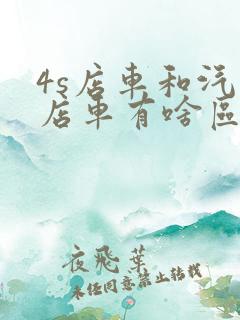 4s店車和汽
店車有啥區
夜飛葉
未經同意禁止轉載